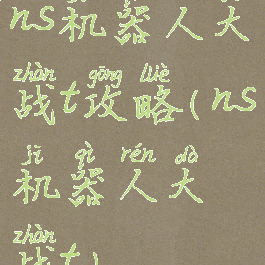 ns机器人大
zhàn gōng lüè
战t攻略(ns
jī qì rén dà
机器人大
zhàn
战t)